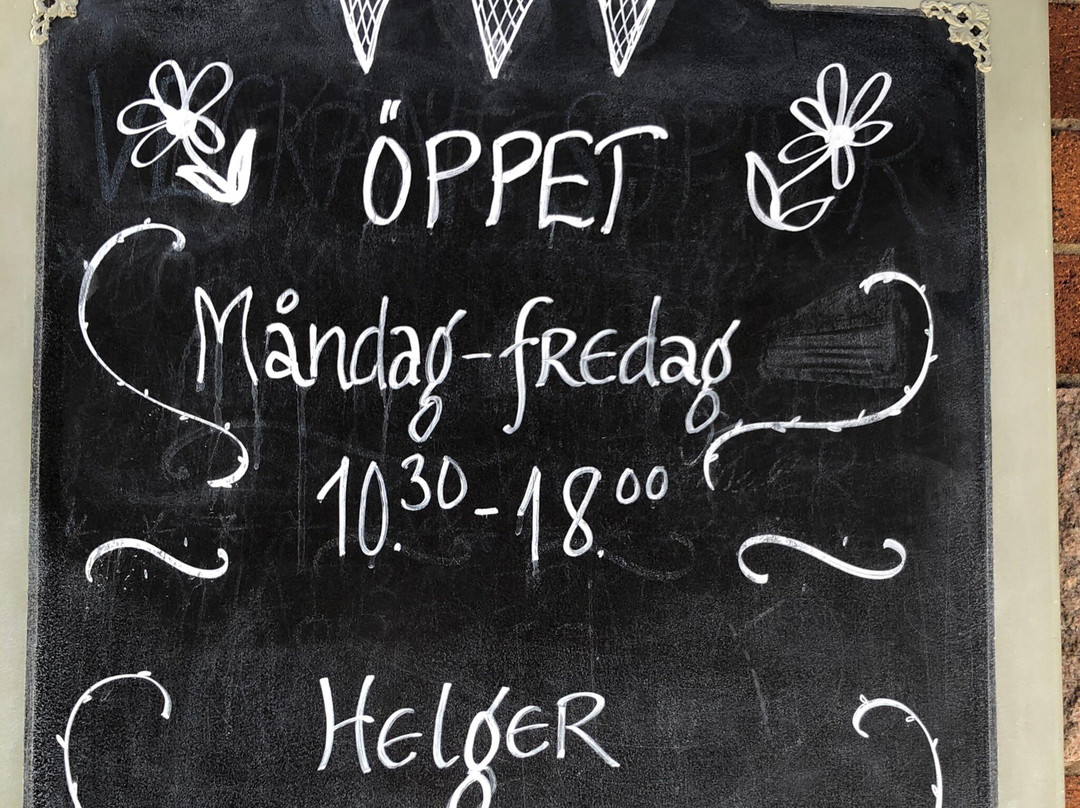 ÖPPET
Måndag-fREdag
10.30-18.00
HElgER